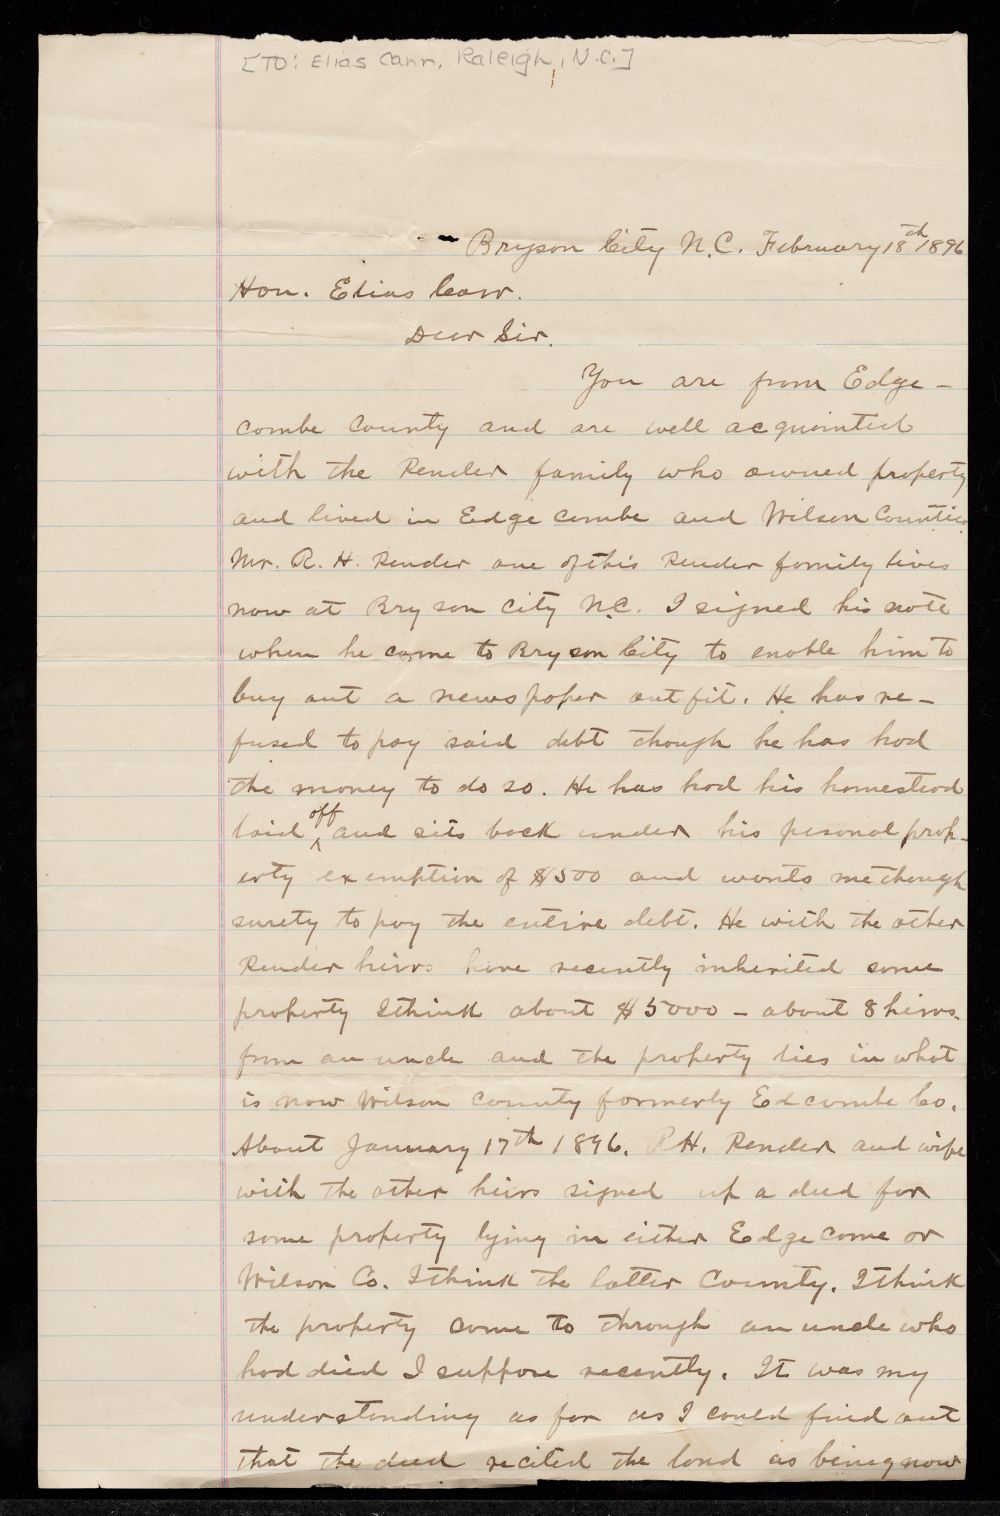 [TO: Elias Carr, Raleigh, N.C.]
Bryson City N.C. February 18th 1896
Hon. Elias Carr.
Dear Sir.
You are from Edge-
combe County and are well acquainted
with the Pender family who owned property
and lived in Edge combe and Wilson Counties
Mr. R. H. Pender one of this Pender family lives
now at Bryson City N.C. I signed his note
when he came to Bryson City to enable him to
buy out a news paper out fit. He has re-
fused to pay said debt though he has had
the money to do so. He has had his homestead
laid off and sits back under his pesonal prop-
erty exemption of $500 and wants me though
surety to pay the entire debt. He with the other
Pender heirs have recently inherited some
property I think about $5000 - about 8 heirs.
from an uncle and the property lies in what
is now Wilson County formerly Edcombe Co.
About January 17th 1896. R.H. Pender and wife
with the other heirs signed up a deed for
some property lying in either Edge come or
Wilson Co. I think the latter County. I think
the property come to through an uncle who
had died I suppose recently. It was my
understanding as far as I could find out
that the deed recited the land as being now